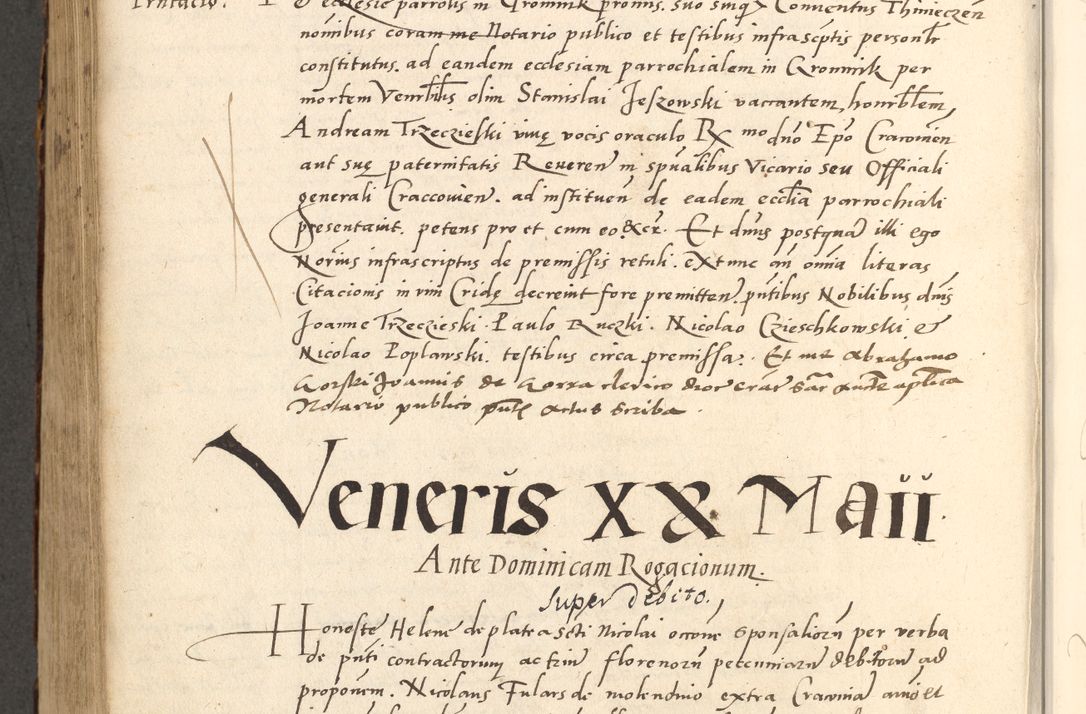 & ecclesie parrolis in Gromnik promus. suo suiq3 Conventus Thinieczen
nominibus coram me Notario publico et testibus infrascptis personlr
constitutus. ad eandem ecclesiam parrochialem in Gromnik per
mortem Venrblis olim Stanislai Jeszowski vaccantem, honrblem,
Andream Trzeczieski vivę vocis oraculo Rx mo dno Epo Cracovien
aut suę paternitatis Reveren in spualibus Vicario seu Officiali
generali Craccovien. ad instituen de eadem ecclia parrochiali
presentavit. petens pro et cum eo &cr. Et dnus postqua illi ego
Norius infrascriptus de premissis retuli. extunc an omia literas
Citacionis in vim Cridę decrevit fore premitten. pntibus Nobilibus dnis
Joanne Trzeczieski. Paulo Ruczki. Nicolao Czieschkowski &
Nicolao Poplawski. testibus circa premissa. Et me Abrahamo
Gorski Joannis de Gorka clerico dioc crac sac aucte aplica
Notario publico pnte actus scriba.
Veneris XX Maii
Ante Dominicam Rogacionum.
Super debito.
Honoste Helene de platea scti Nicolai occone sponsalioru per verba
de pnti contractorum ac trium florenoru peccuniaru debitoru ad
proponem. Nicolaus Fulars de molendino extra Cracovia